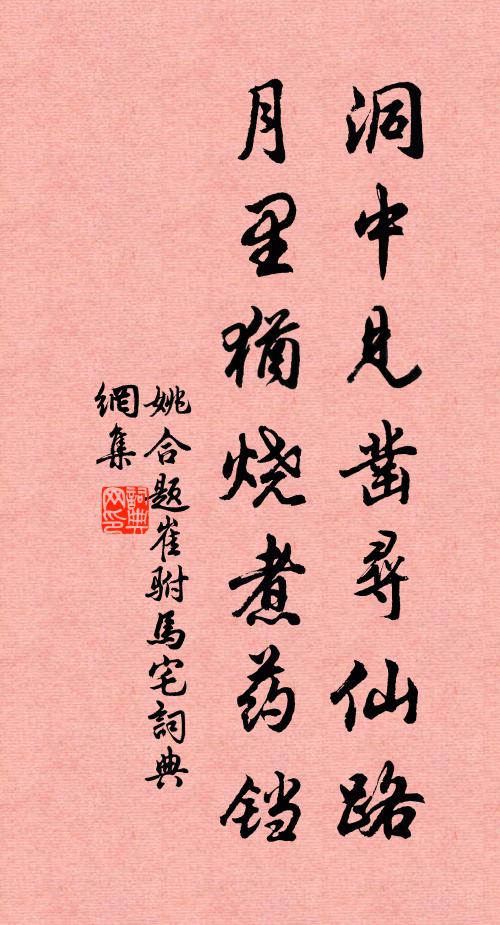 洞中见凿寻仙路
月里犹烧煮药铛
姚合题崔驸馬宅詞典
網集
詞典
网印